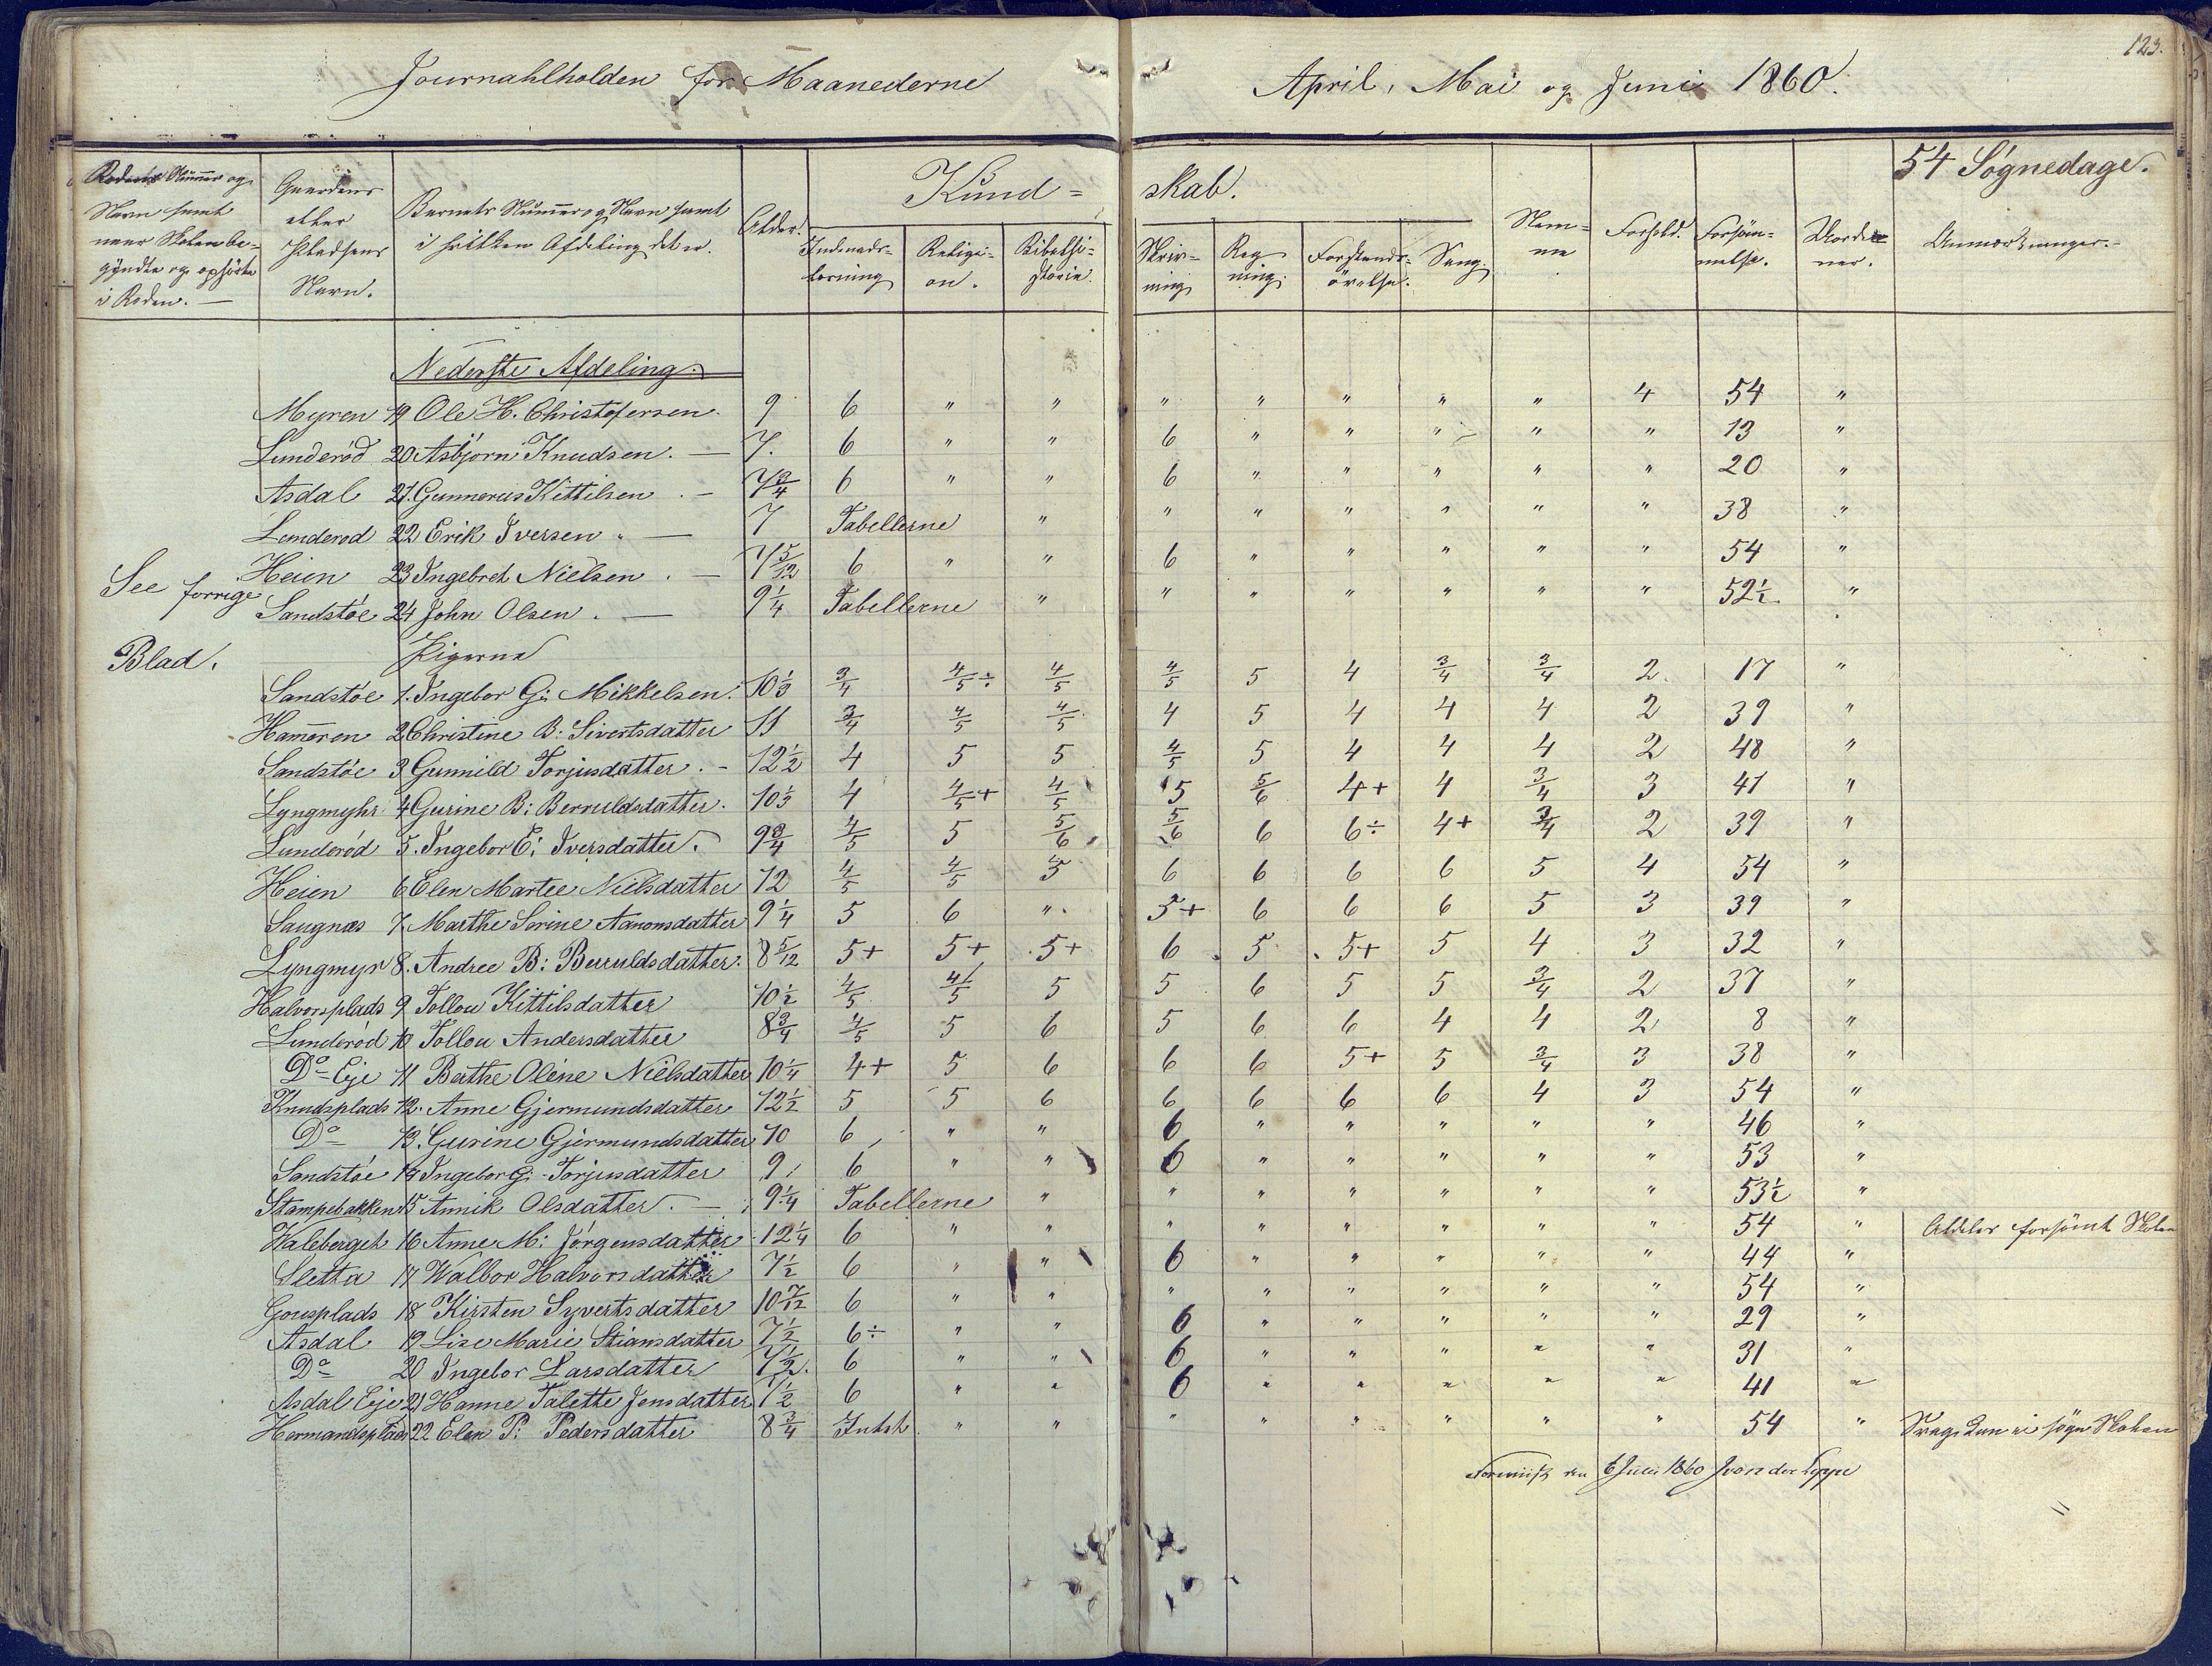 123.
Journahlholden for Maanederne April, Mai og Juni 1860.
Rodens Nummer og
Navn samt
naar Skolen be-
gyndte og ophørte
i Roden. —
Gaardens
eller
Pladsens
Navn.
Barnets Nummer og Navn samt
i hvilken Afdeling det er.
Alder.
Kund= skab.
Indenads-
læsning
Religi-
on.
Bibelhi-
storie.
Skriv-
ning
Reg-
ning.
Forstands-
øvelse.
Sang.
Nem-
me
Forhold.
Forsøm-
melse.
54 Søgnedage.
Anmærkninger.-
Nederste Afdeling.
Myren 19 Ole H. Christofersen. 9 6 " " " " " " " 4 54 "
Lunderød 20 Asbjørn Knudsen. — 7. 6 " " 6 " " " " " 13 "
Asdal 21. Gunnerus Kittilsen . - 7 3/4 6 " " 6 " " " " " 20 "
Lunderod 22 Erik Iversen . — 7 Tabellerne " " " " " " " 38 "
Heien 23 Ingebret Nielsen . - 7 5/12 6 " " 6 " " " " " 54 "
See forrige
Sandstøe 24 John Olsen . — 9 1/4 Tabellerne " " " " " " " 52 1/2 "
Blad.
Pigerne
Sandstøe 1. Ingebor G: Mikkelsen. 10 1/3 3/4 4/5 ÷ 4/5 4/5 5 4 3/4 3/4 2. 17 "
Hameren 2 Christine B: Sivertsdatter 11 3/4 4/5 4/5 4 5 4 4 4 2 39 "
Sandstøe 3 Gunnild Torjusdatter . - 12 1/2 4 5 5 4/5 5 4 4 4 2 48 "
Lyngmyhr 4 Gurine B: Berruldsdatter. 10 1/3 4 4/5 + 4/5 5 5/6 4+ 4 3/4 3 41 "
Lunderød 5. Ingebor E: Iversdatter. 9 3/4 4/5 5 5/6 5/6 6 6÷ 4+ 3/4 2 39 "
Heien 6 Elen Martee Nielsdatter 12 4/5 4/5 5 6 6 6 6 5 4 54 "
Saugnæs 7. Marthe Sorine Aanonsdatter 9 1/4 5 6 " 5+ 6 6 6 5 3 39 "
Lyngmyr 8. Andree B: Beruldsdatter. 8 5/12 5+ 5+ 5+ 6 5 5+ 5 4 3 32 "
Halvorsplads 9 Tollou Kittilsdatter 10 1/2 4/5 4/5 5 5 6 5 5 3/4 2 37 "
Lunderød 10 Tollou Andersdatter 8 3/4 4/5 5 6 5 6 6 4 4 2 8 "
Do Eje 11 Berthe Olene Nielsdatter 10 1/4 4+ 5 6 6 6 5+ 5 3/4 3 38 "
Knudsplads 12. Anne Gjermundsdatter 12 1/2 5 5 6 6 6 6 6 4 3 54 "
Do 13. Gurine Gjermundsdatter 10 6 " " 6 " " " " " 46 "
Sandstøe 14 Ingebor G. Torjusdatter 9 6 " " 6 " " " " " 53 "
Stampebakken 15 Annik Olsdatter. — 9 1/4 Tabellerne " " " " " " " 53 1/2 "
Waleberget 16 Anne M: Jørgensdatter 12 1/4 6 " " " " " " " " 54 " Aldeles forsømt Skolen
Sletta 17 Walbor Halvorsdatter 7 1/2 6 " " 6 " " " " " 44 "
18 Kirsten Syvertsdatter 10 7/12 6 " " " " " " " " 54 "
Asdal 19 Lise Marie Stiansdatter 7 1/2 6÷ " " 6 " " " " " 29 "
Do 20 Ingebor Larsdatter 7 1/2. 6 " " 6 " " " " " 31 "
Asdal Eje 21 Hanne Talette Jensdatter 7 1/2 6 " " 6 " " " " " 41 "
22 Elen P: Pedersdatter 8 3/4 Intet " " " " " " " " 54 " Svag, kan ei søge Skolen
6 Juli 1860